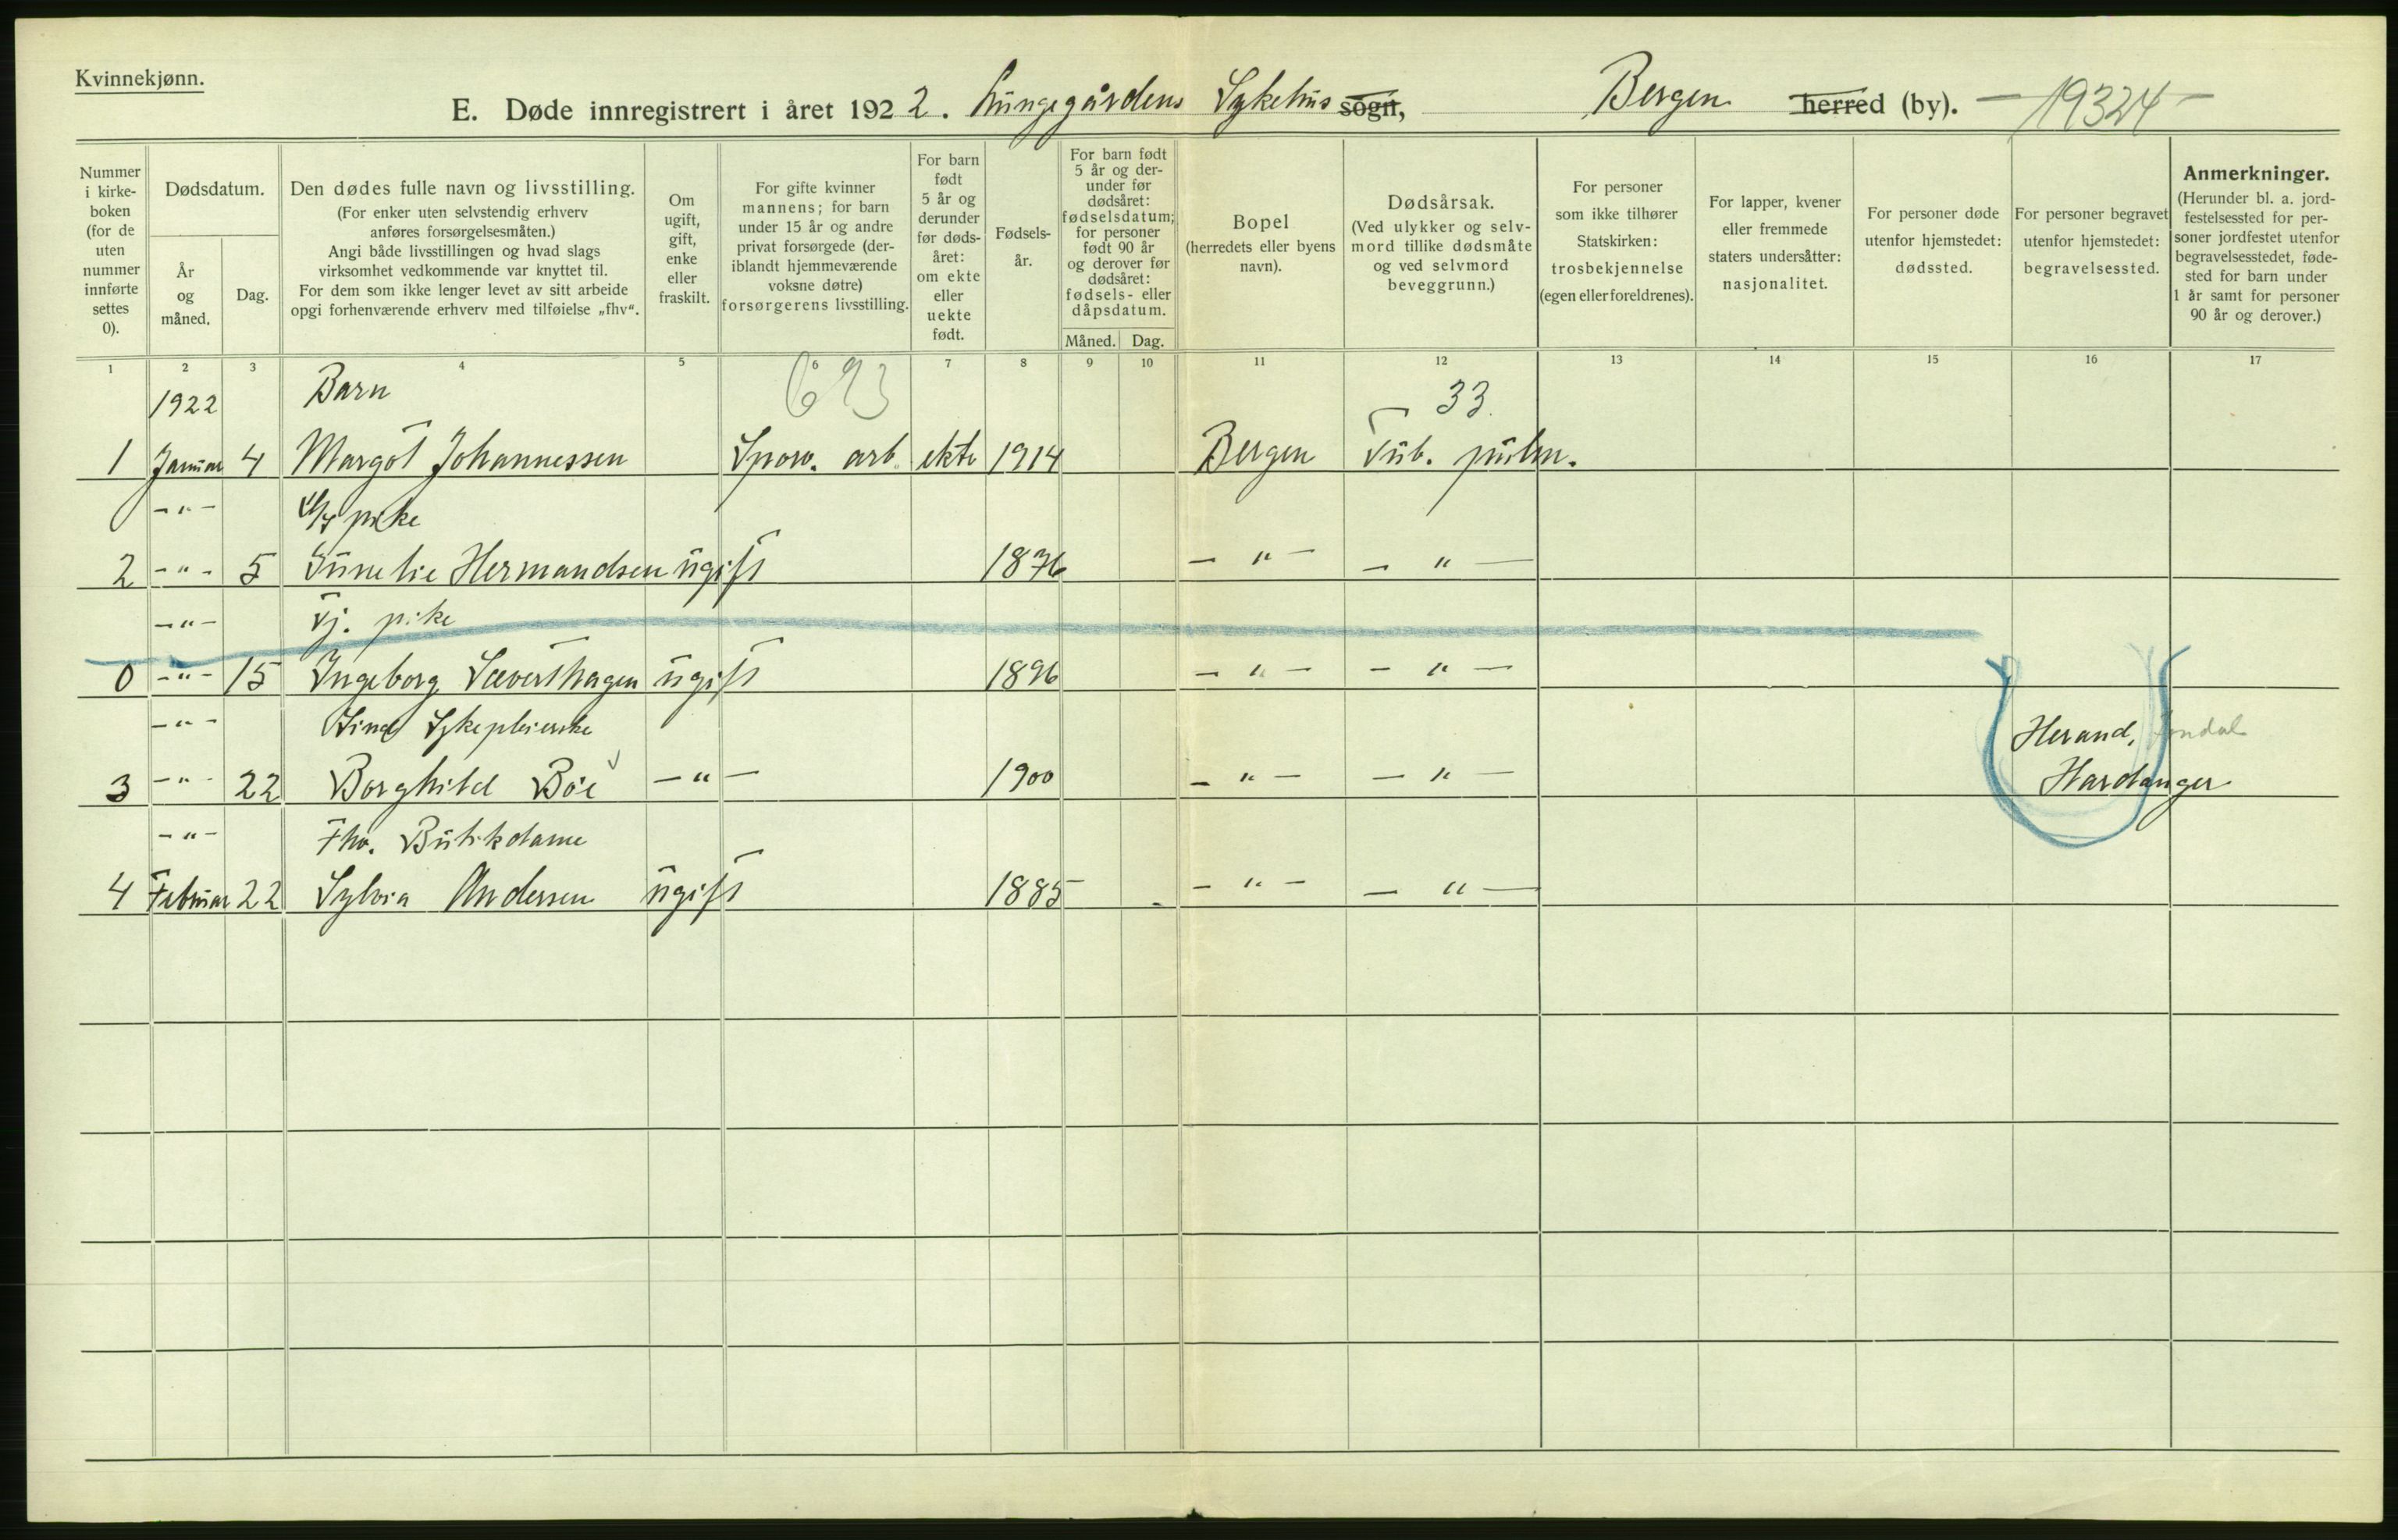 Kvinnekjønn.
E. Døde innregistrert i året 1922. Lungegårdens Sykehus sogn, Bergen herred (by). — 19324 —
Nummer i kirke- boken (for de uten nummer innførte settes 0).
Dødsdatum.
År og måned.
Dag.
Den dødes fulle navn og livsstilling.
(For enker uten selvstendig erhverv anføres forsørgelsesmåten.)
Angi både livsstillingen og hvad slags virksomhet vedkommende var knyttet til.
For dem som ikke lenger levet av sitt arbeide opgi forhenværende erhverv med tilføielse „fhv“.
Om ugift, gift, enke eller fraskilt.
For gifte kvinner mannens; for barn under 15 år og andre privat forsørgede (der- iblandt hjemmeværende voksne døtre) forsørgerens livsstilling.
For barn født 5 år og derunder før døds- året: om ekte eller uekte født.
Fødsels- år.
For barn født 5 år og der- under før dødsåret: fødselsdatum; for personer født 90 år og derover før dødsåret: fødsels- eller dåpsdatum.
Måned. Dag.
Bopel (herredets eller byens navn).
Dødsårsak. (Ved ulykker og selv- mord tillike dødsmåte og ved selvmord beveggrunn.)
For personer som ikke tilhører Statskirken: trosbekjennelse (egen eller foreldrenes).
For lapper, kvener eller fremmede staters undersåtter: nasjonalitet.
For personer døde utenfor hjemstedet: dødssted.
For personer begravet utenfor hjemstedet: begravelsessted.
Anmerkninger. (Herunder bl. a. jord- festelsessted for per- soner jordfestet utenfor begravelsesstedet, føde- sted for barn under 1 år samt for personer 90 år og derover.)
1 2 3 4 5 6 7 8 9 10 11 12 13 14 15 16 17
1922 Barn 693 33.
1 Januar 4 Margot Johannessen Sporv. arb. ekte 1914 Bergen Tub. pulm.
— " — pike
2 — " — 5 Hermandsen ugift 1876 — " — — " —
— " — Tj. pike
0 — " — 15 Ingeborg Sæverthagen ugift 1896 — " — — " —
— " — Sykepleierske Herand, Jondal
3 — " — 22 Borghild Bøe — " — 1900 — " — — " — Hardanger
— " — Fhv. Butikdame
4 Februar 22 Sylvia Andersen ugift 1885 — " — — " —